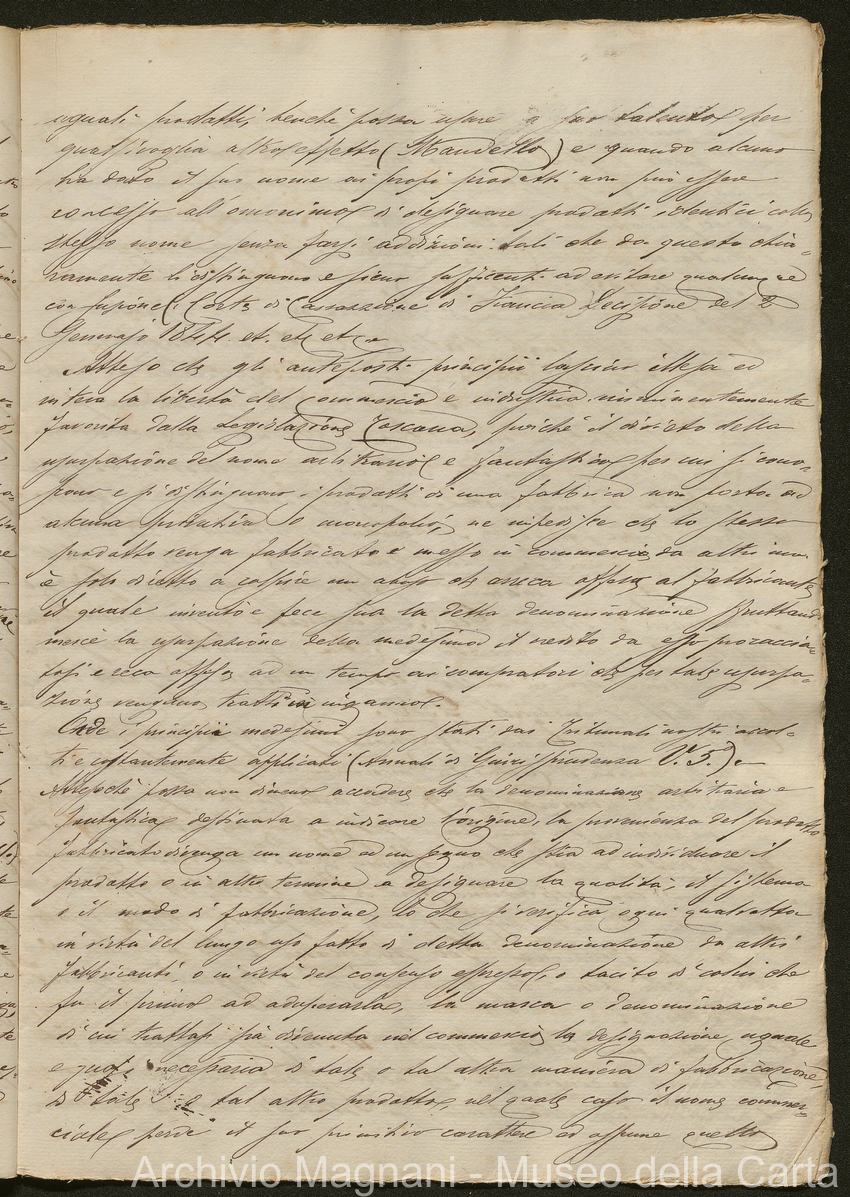 uguali prodatti, benchè possa usare a suo talento per
qualsivoglia altro effetto (Mandello) e quando alcuno
ha dato il suo nome ai propi prodotti non può essere
concesso all'omonimo di designare prodatti identici collo
stesso nome senza farsi addizioni tali che da questo chia-
ramente li distinguano e sieno sufficenti ad evitare qualunque
confusione (Corte di Cassazione di Francia Decisione del 2
Gennajo 1844. et. et. et.
Atteso che gli anteposti principii lasciano illesa ed
intera la libertà del commercio e industria eminentemente
favorita dalla Legislazione Toscana, poichè il divieto della
usurpazione del nome arbitrario e fantastico per cui si cono-
scono e si distinguono i prodatti di una fabbrica non porta ad
alcuna privativa o monopolio, ne impedisce che lo stesso
prodatto venga fabbricato e messo in commercio da altri ma
è solo diretto a colpire un abuso che arreca offesa al fabbricante
il quale inventò e fece sua la detta denominazione fruttando
mercè la usurpazione della medesima il credito da esso procaccia-
tosi e reca offesa ad un tempo ai compratori che per tale usurpa-
zione vengono tratti in inganno.
Onde i principii medesimi sono stati dai Tribunali nostri accol-
ti e costantemente applicati (Annali di Giurisprudenza V. T.)
Attesochè possa non dimeno accadere che la denominazione arbitraria e
fantastica destinata a indicare l'origine, la provenienza del prodotto
fabbricato divenga un nome ed un segno che stia ad individuare il
prodatto o in altro termine a designare la qualità, il sistema
o il modo di fabbricazione, lo che si verifica ogni qualvolta
in virtù del lungo uso fatto di detta denominazione da altri
fabbricanti, o in virtù del consenso espresso, o tacito di colui che
fu il primo ad adoperarla, la marca o denominazione
di cui trattasi sia divenuta nel commercio la designazione usuale
e quasi necessaria di tale o tal altra maniera di fabbricazione,
di tale o tal altro prodatto, nel quale caso il nome commer-
ciale perde il suo primitivo carattere ed assume quello
Archivio Magnani - Museo della Carta